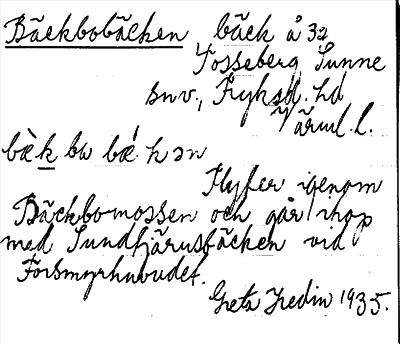 Bäckbobäcken bäck å 32
Tosseberg Sunne
snv., Fryksd. hd
Värml. l.
bæ̀k bω bǽkən
Flyter igenom
Bäckbomossen och går ihop
med Sundtjärnsbäcken vid
Forsmyrhuvudet.
Greta Hedin 1935.